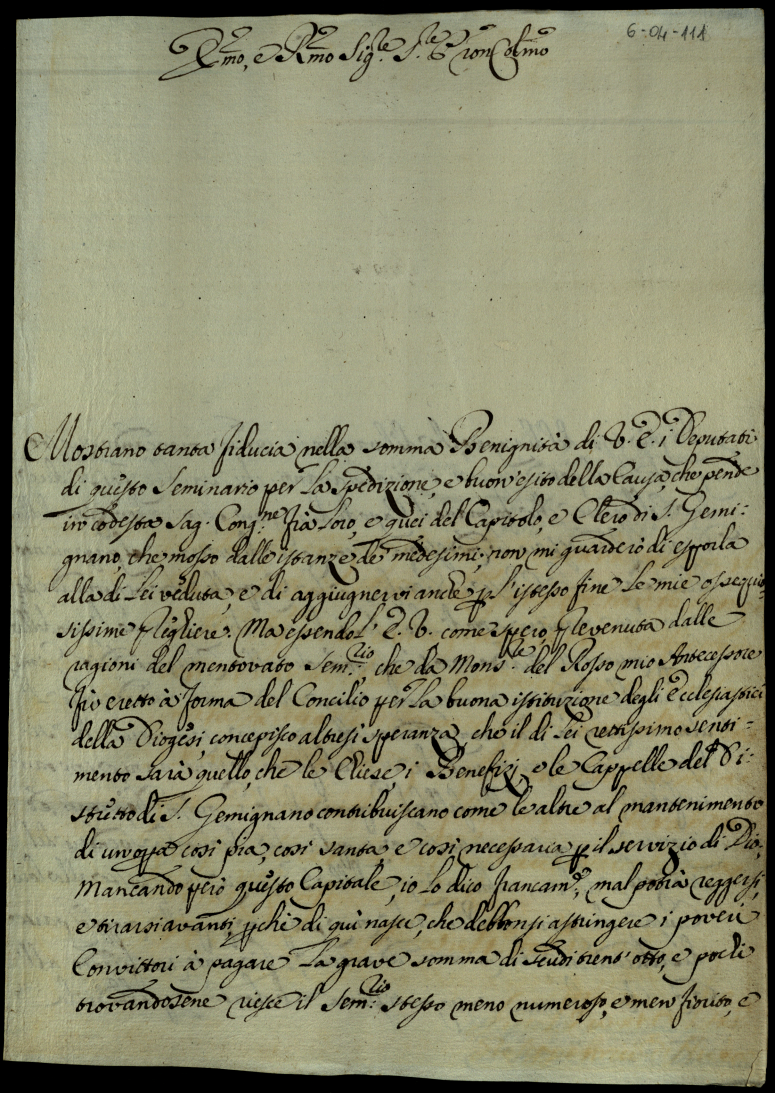 6-04-111
Emo, e Rmo Sig.re, S.re e Pron Colmo
Mostrano tanta fiducia nella somma Benignità di V. E. i Deputati
di questo Seminario per la spedizione, e buon'esito della Causa, che pende
in codesta Sag. Cong.ne fra loro, e quei del Capitolo, e Clero di S. Gemi:
gnano, che mosso dalle istanze de' medesimi, non mi guarderò di esporla
alla di Lei veduta, e di aggiugnervi anche p. l'istesso fine le mie ossequio:
sissime preghiere. Ma essendo L' E. V. come spero, prevenuta dalle
ragioni del mentovato Sem.rio, che da Mons.re del Rosso mio Antecessore
fù eretto à forma del Concilio per la buona istituzione degli Ecclesiastici
della Diogesi, concepisco altresi speranza, che il di Lei rettissimo senti:
mento sarà quello, che le Chiese, i Benefizi, e le Cappelle del Di:
stretto di S. Gemignano contribuiscano come le altre al mantenimento
di un'opa così pia, così santa e così necessaria p il servizio di Dio.
Mancando però questo Capitale, io lo dico francam.e, mal potrà reggersi,
e tirarsi avanti, pchè di quì nasce, che debbonsi astringere i poveri
Convittori à pagare la grave somma di scudi trent'otto, e pochi
trovandosene riesce il Sem.rio stesso meno numeroso, e men fiorito, e